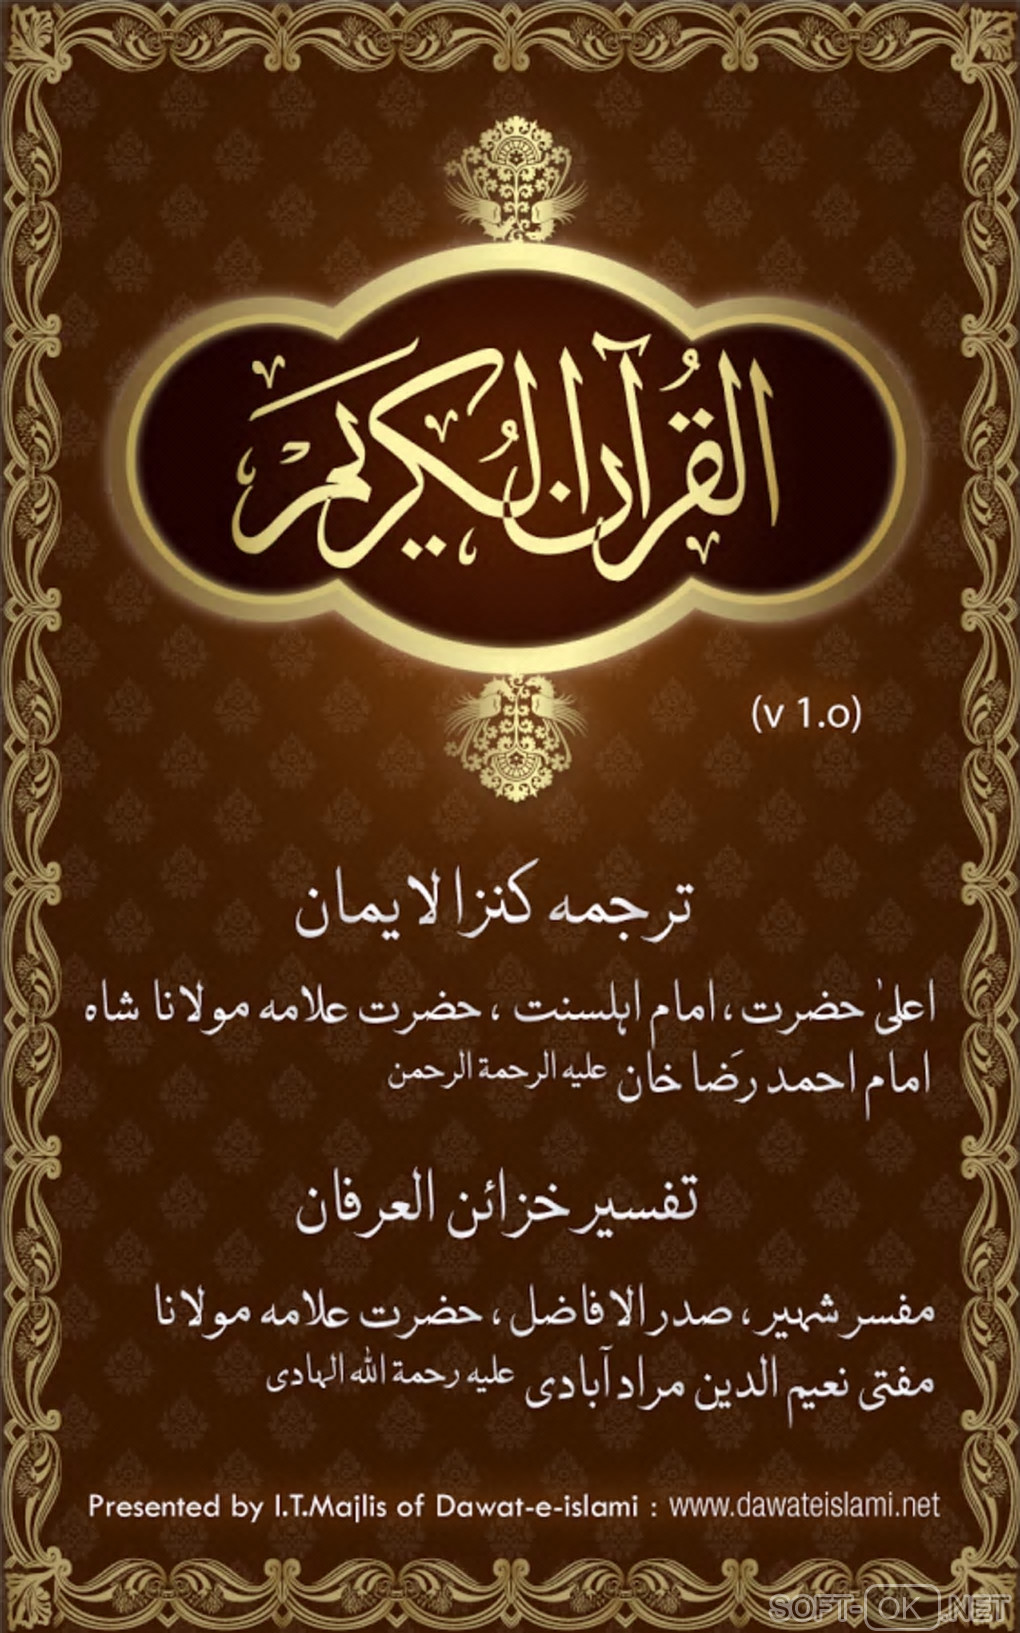 القرآن الكريم
(v 1.0)
ترجمه کنزالایمان
اعلیٰ حضرت، امام اہلسنت، حضرت علامه مولانا شاه
امام احمد رَضا خان علیه الرحمة الرحمن
تفسیر خزائن العرفان
مفسر شہیر، صدر الافاضل، حضرت علامه مولانا
مفتی نعیم الدین مرادآبادی علیه رحمة الله الہادی
Presented by I.T.Majlis of Dawat-e-islami : www.dawateislami.net
SOFT-OK.NET